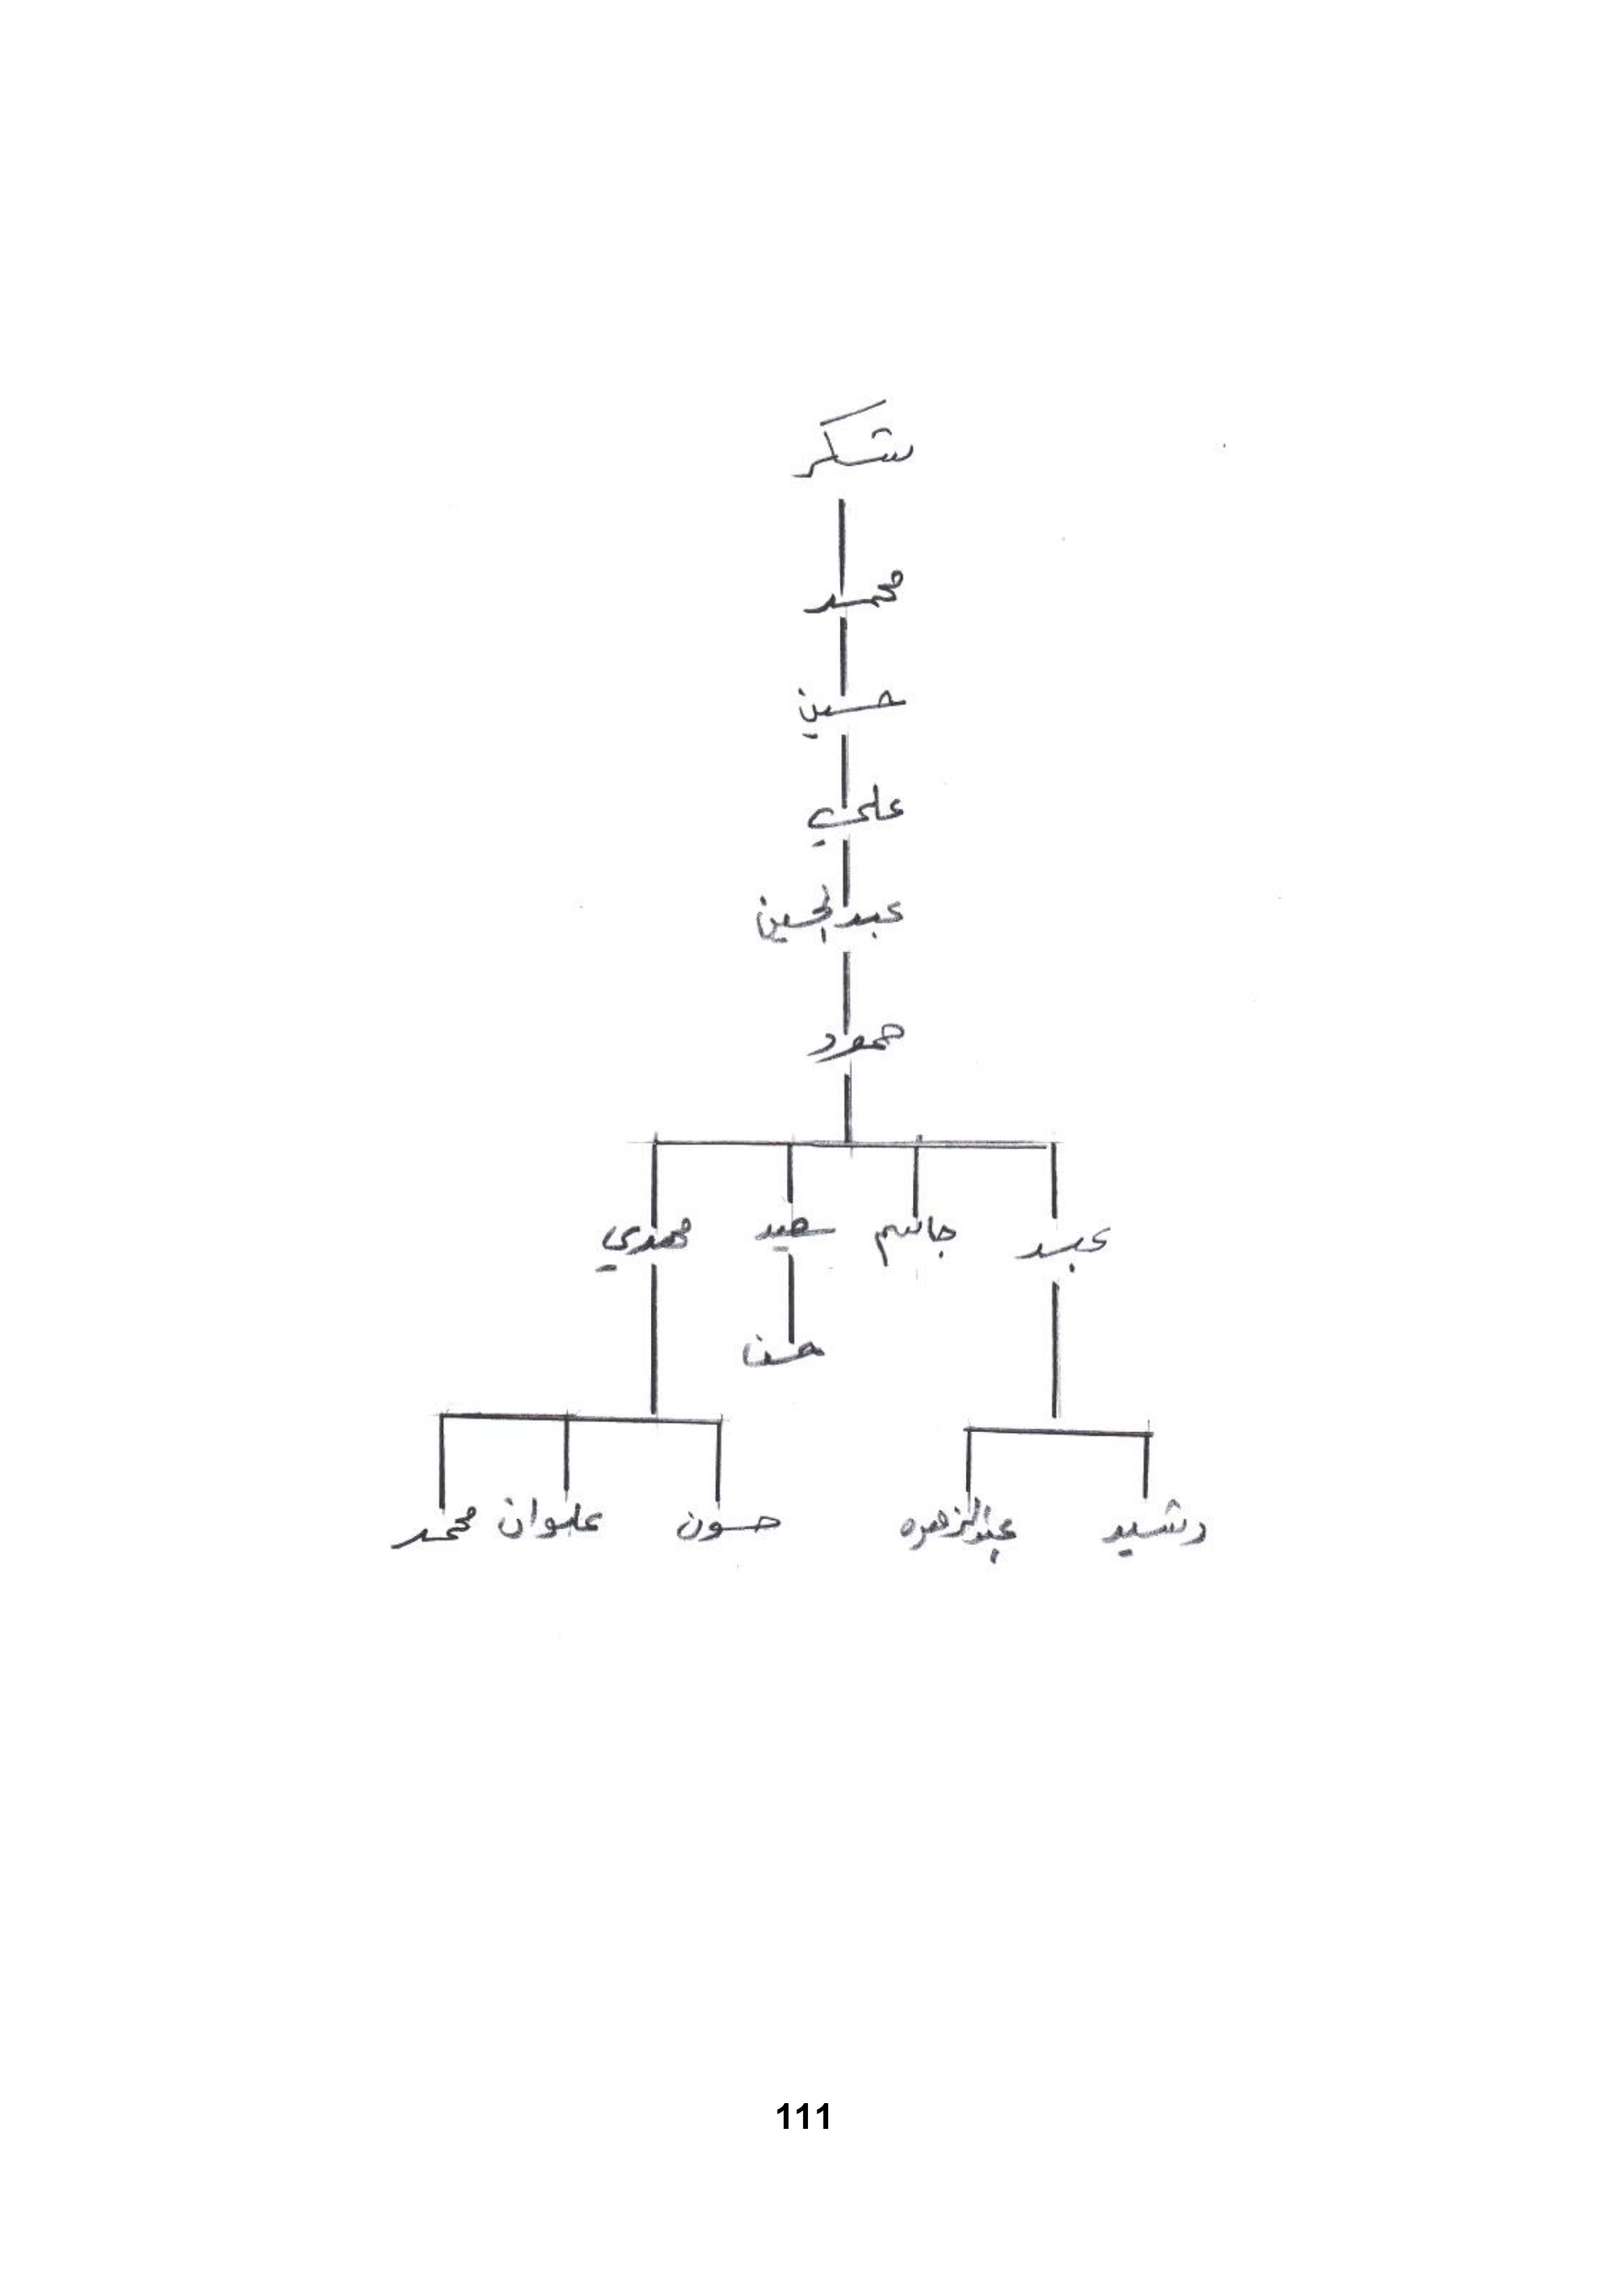 شكر
محمد
حسين
علي
عبدالحسين
حمود
عبد جاسم سعيد مهدي
حسن
رشيد عبدالزهره حسون علوان محمد
111